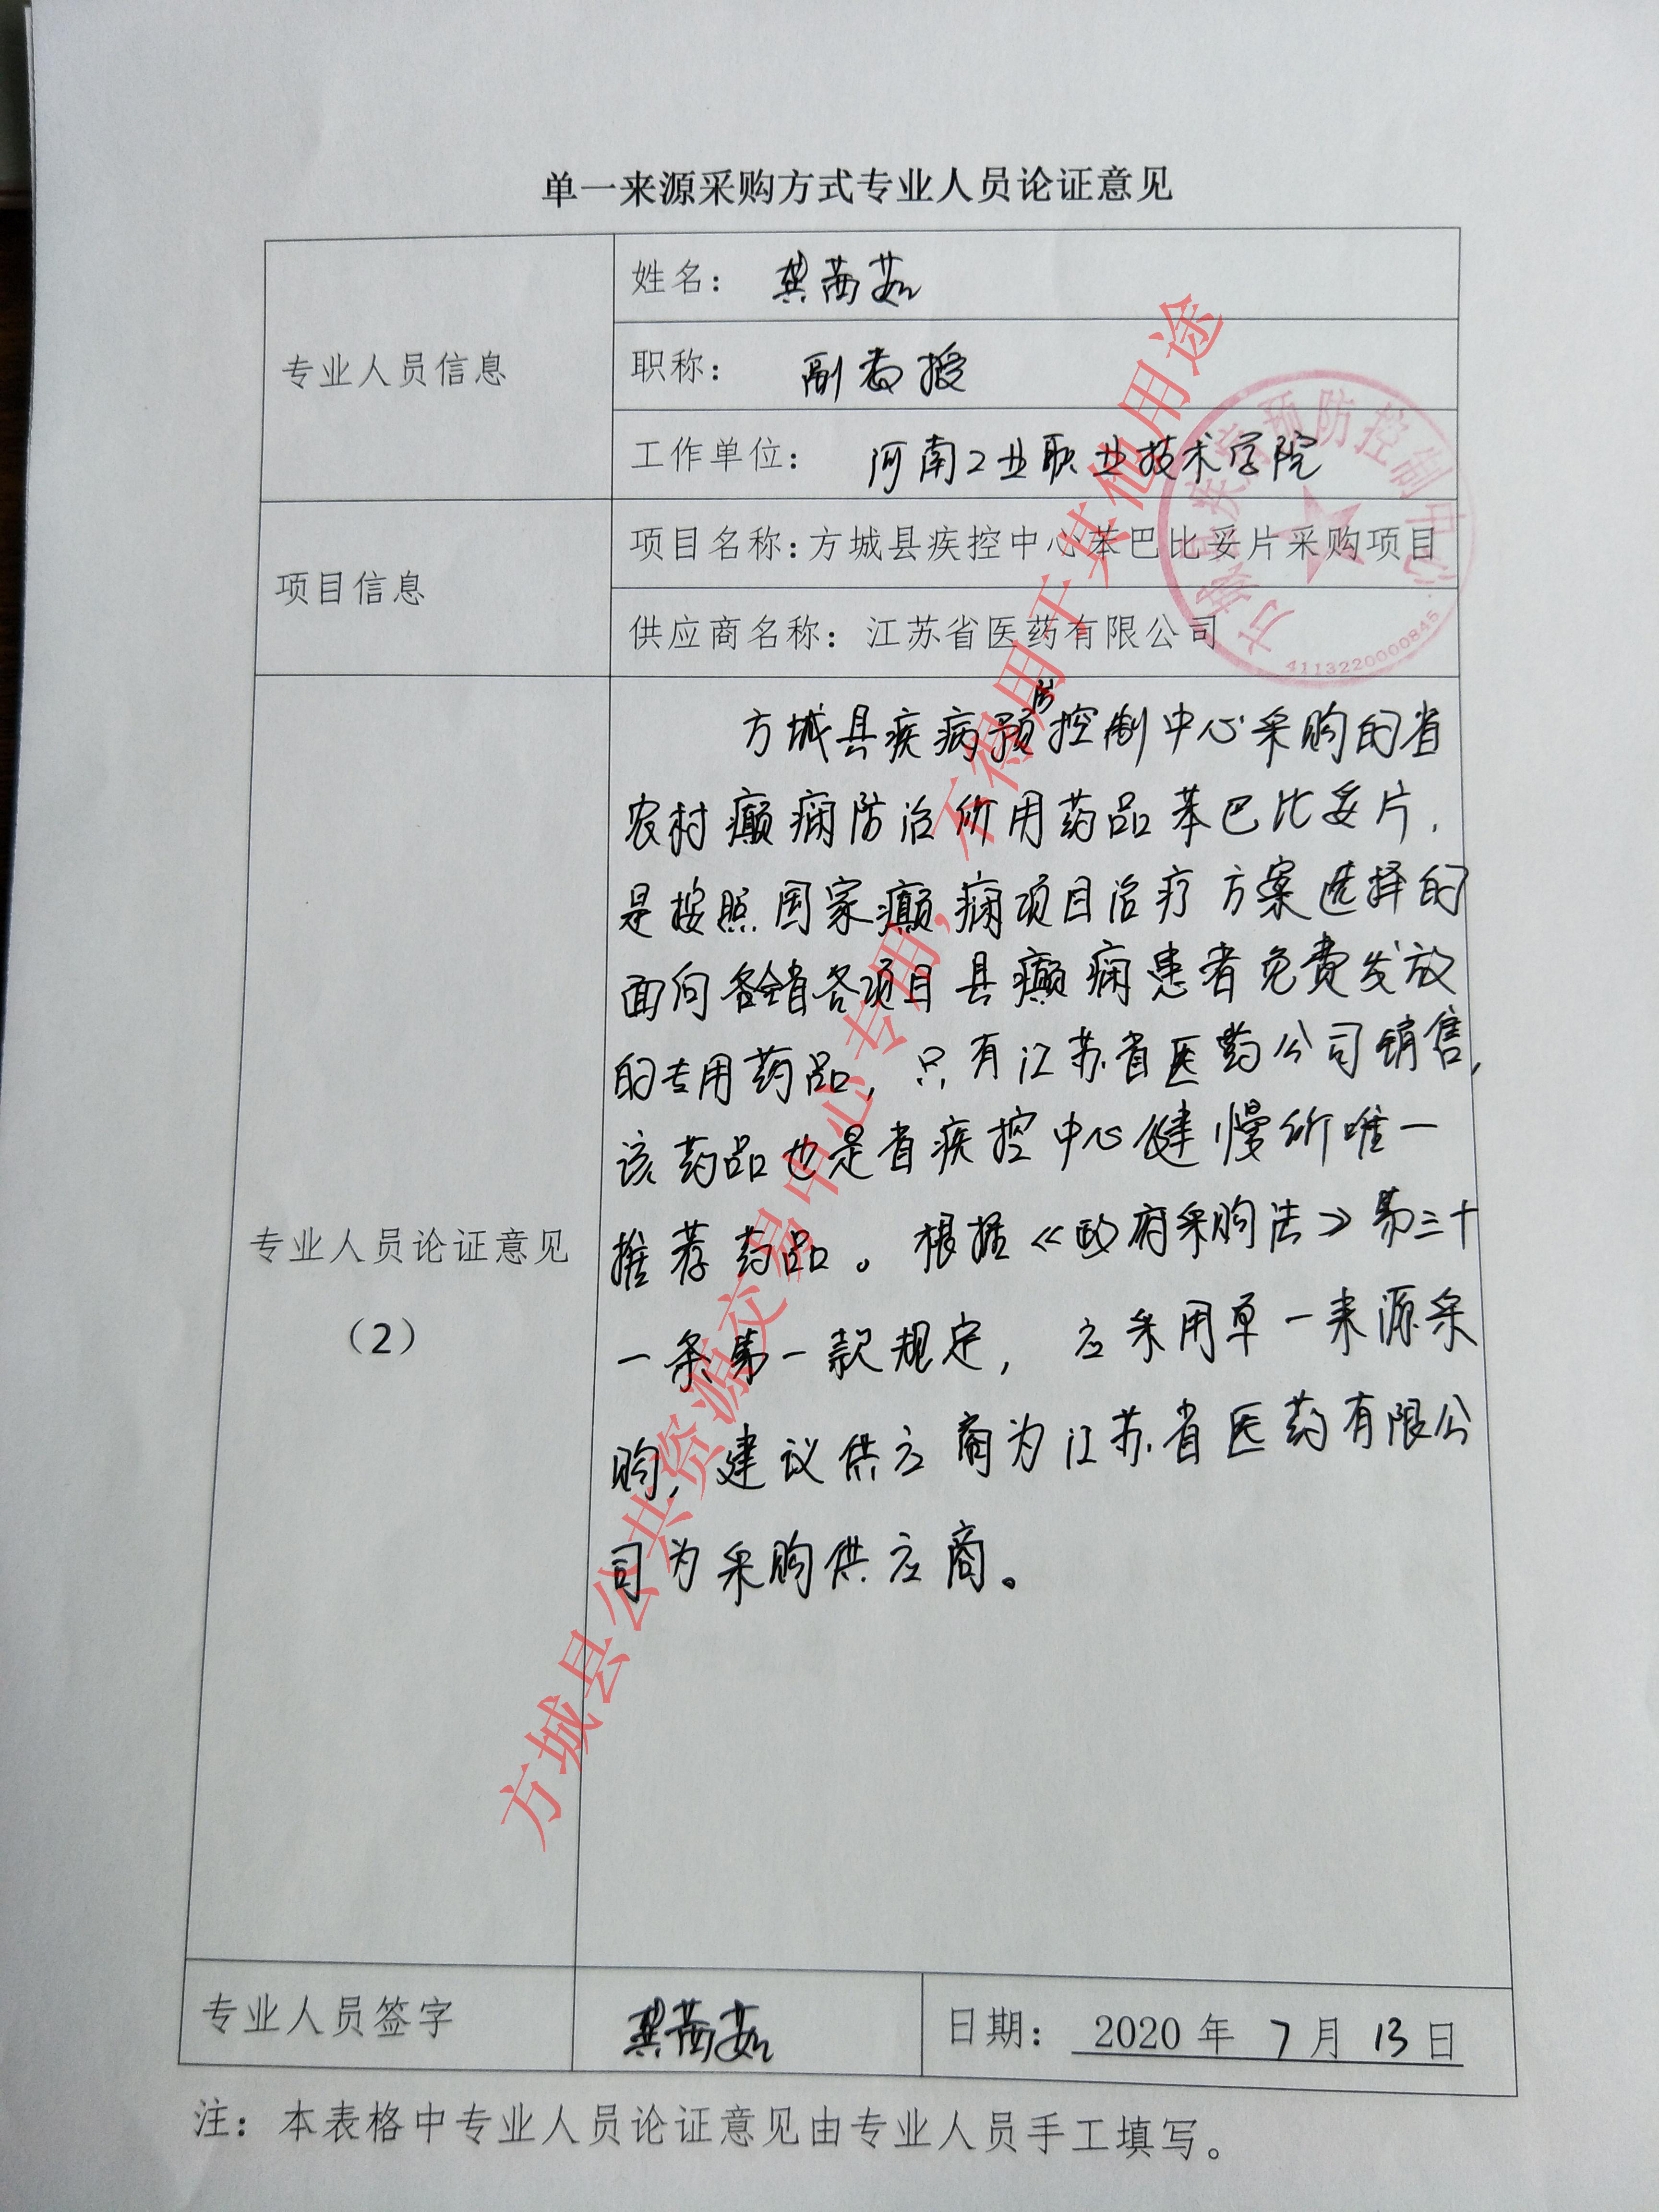 单一来源采购方式专业人员论证意见
专业人员信息
姓名： 龚茜茹
职称： 副教授
工作单位： 河南工业职业技术学院
项目信息
项目名称：方城县疾控中心苯巴比妥片采购项目
供应商名称：江苏省医药有限公司
专业人员论证意见
（2）
方城县疾病预防控制中心采购的省
农村癫痫防治所用药品苯巴比妥片，
是按照国家癫痫项目治疗方案选择的
面向全省各项目县癫痫患者免费发放
的专用药品，只有江苏省医药公司销售，
该药品也是省疾控中心健慢所唯一
推荐药品。根据《政府采购法》第三十
一条第一款规定，应采用单一来源采
购，建议供应商为江苏省医药有限公
司为采购供应商。
专业人员签字
龚茜茹
日期： 2020 年 7 月 13 日
注：本表格中专业人员论证意见由专业人员手工填写。
方城县疾病预防控制中心
4113220000845
方城县公共资源交易中心专用，不得用于其他用途